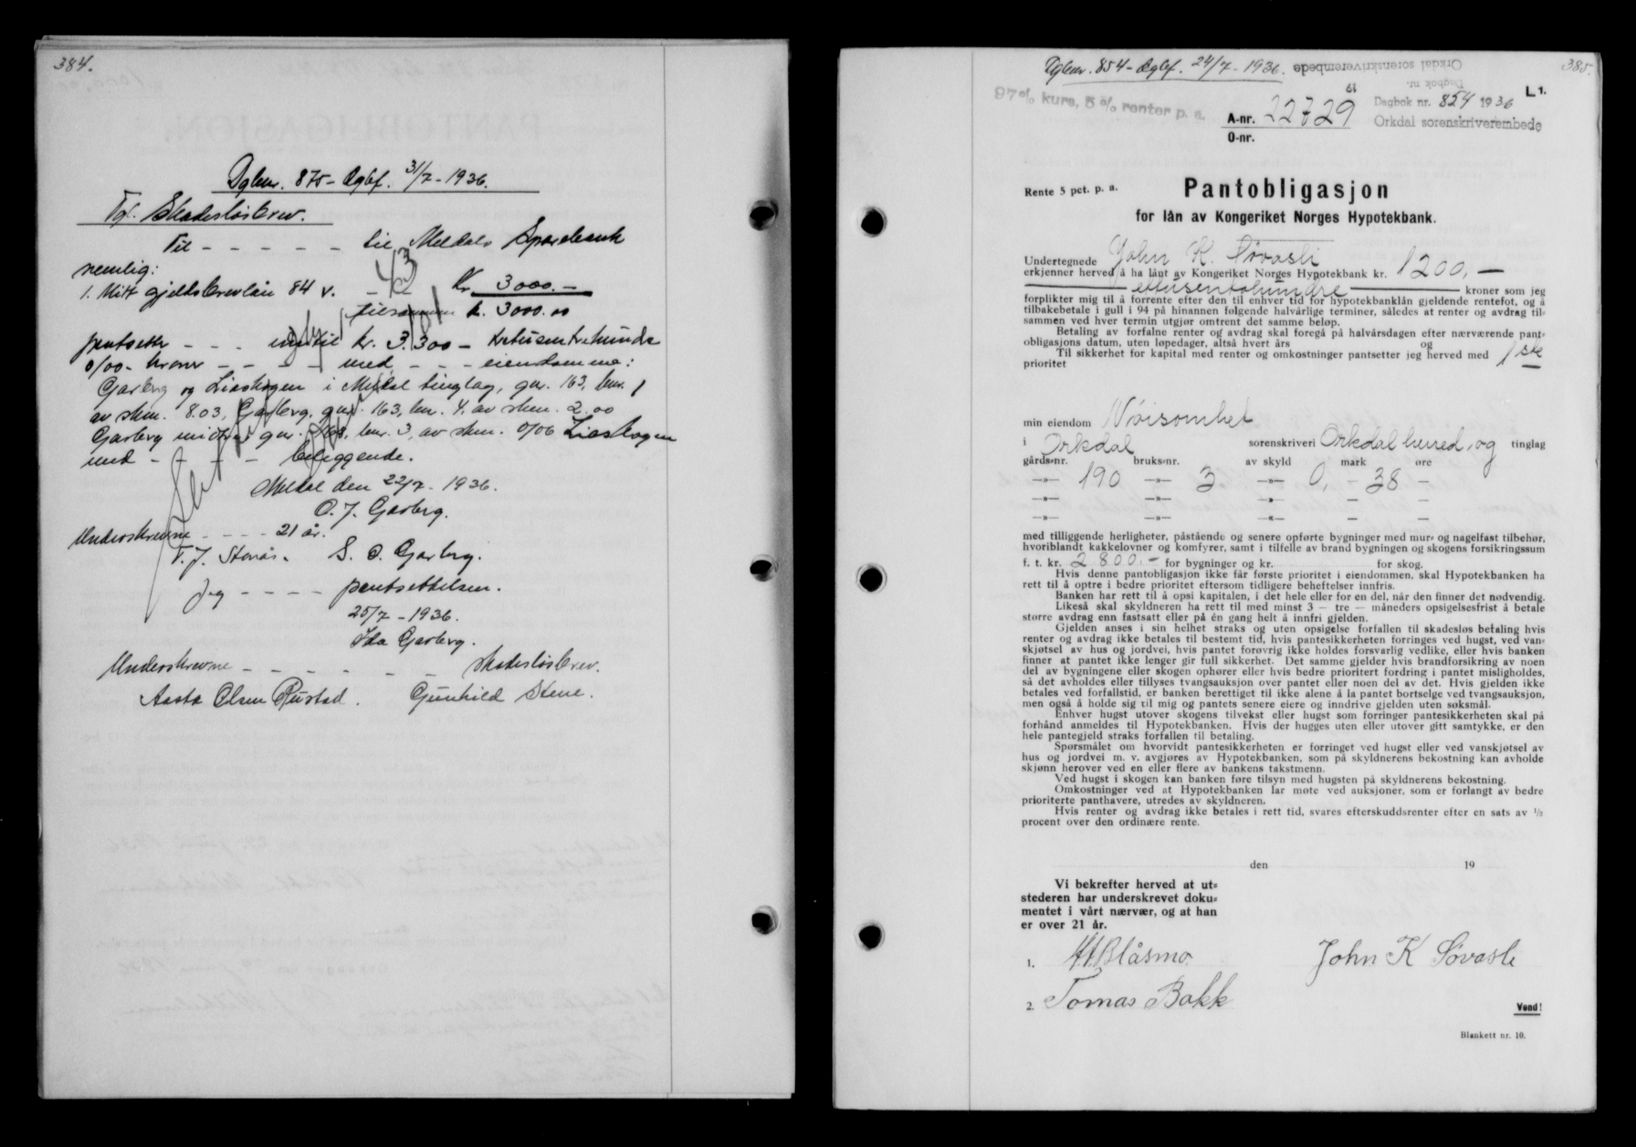 384.
Dgbnr. 875 - dgbf. 31/7 - 1936.
Tgl. Skadesløsbrev.
Til - - - - - til Meldals Sparebank
nemlig:
1. Mitt gjeldsbrevlån 84 v. - Kr. 3000.-
tilsammen kr. 3000.00
pantsetter - - - inntil kr. 3.300 -
0/00 - kroner - - - - med - - - eiendomme:
Garberg og Lieskogen i Meldal tinglag, gnr. 163, bnr. 1
av skm. 8.03, Garberg, gnr. 163, bnr. 4, av skm. 2.00
Garberg gnr. bnr. 3, av skm. 0/06 Lieskogen
med - - - - beliggende.
Meldal den 22/7 - 1936.
O. J. Garberg.
Underskrevne - - - - 21 år.
T. J. Stenås. S. O. Garberg.
Jeg - - - - pantsettelsen.
25/7 - 1936.
Ida Garberg.
Underskrevne - - - - - skadesløsbrev.
Aasta Olsen Rustad. Gunhild Stene.
385.
Dgbnr. 854 - dgbf. 24/7 - 1936.
Orkdal sorenskriverembede
Dagbok nr.
19
97 % kurs, 5 % renter p. a.
A-nr. 22729
O-nr.
L 1.
Dagbok nr. 854 1936
Orkdal sorenskriverembede
Rente 5 pct. p. a.
Pantobligasjon
for lån av Kongeriket Norges Hypotekbank.
Undertegnede John K. Søvasli
erkjenner herved å ha lånt av Kongeriket Norges Hypotekbank kr. 1200,-
ettusentohundre kroner som jeg
forplikter mig til å forrente efter den til enhver tid for hypotekbanklån gjeldende rentefot, og å
tilbakebetale i gull i 94 på hinannen følgende halvårlige terminer, således at renter og avdrag til-
sammen ved hver termin utgjør omtrent det samme beløp.
Betaling av forfalne renter og avdrag skal foregå på halvårsdagen efter nærværende pant-
obligasjons datum, uten løpedager, altså hvert års og
Til sikkerhet for kapital med renter og omkostninger pantsetter jeg herved med 1ste
prioritet
min eiendom Nøisomhet
i Orkdal sorenskriveri Orkdal herred, og tinglag
gårds-nr. bruks-nr. av skyld mark øre
—»— 190 —»— 3 —»— 0, — 38 —
—»— —»— —»— — —
—»— —»— —»— — —
med tilliggende herligheter, påstående og senere opførte bygninger med mur- og nagelfast tilbehør,
hvoriblandt kakkelovner og komfyrer, samt i tilfelle av brand bygningen og skogens forsikringssum
f. t. kr. 2800.- for bygninger og kr. for skog.
Hvis denne pantobligasjon ikke får første prioritet i eiendommen, skal Hypotekbanken ha
rett til å optre i bedre prioritet eftersom tidligere beheftelser innfris.
Banken har rett til å opsi kapitalen, i det hele eller for en del, når den finner det nødvendig.
Likeså skal skyldneren ha rett til med minst 3 — tre — måneders opsigelsesfrist å betale
større avdrag enn fastsatt eller på én gang helt å innfri gjelden.
Gjelden anses i sin helhet straks og uten opsigelse forfallen til skadesløs betaling hvis
renter og avdrag ikke betales til bestemt tid, hvis pantesikkerheten forringes ved hugst, ved van-
skjøtsel av hus og jordvei, hvis pantet forøvrig ikke holdes forsvarlig vedlike, eller hvis banken
finner at pantet ikke lenger gir full sikkerhet. Det samme gjelder hvis brandforsikring av noen
del av bygningene eller skogen ophører eller hvis bedre prioritert fordring i pantet misligholdes,
så det avholdes eller tillyses tvangsauksjon over pantet eller noen del av det. Hvis gjelden ikke
betales ved forfallstid, er banken berettiget til ikke alene å la pantet bortselge ved tvangsauksjon,
men også å holde sig til mig og pantets senere eiere og inndrive gjelden uten søksmål.
Enhver hugst utover skogens tilvekst eller hugst som forringer pantesikkerheten skal på
forhånd anmeldes til Hypotekbanken. Hvis der hugges uten eller utover gitt samtykke, er den
hele pantegjeld straks forfallen til betaling.
Spørsmålet om hvorvidt pantesikkerheten er forringet ved hugst eller ved vanskjøtsel av
hus og jordvei m. v. avgjøres av Hypotekbanken, som på skyldnerens bekostning kan avholde
skjønn herover ved en eller flere av bankens takstmenn.
Ved hugst i skogen kan banken føre tilsyn med hugsten på skyldnerens bekostning.
Omkostninger ved at Hypotekbanken lar møte ved auksjoner, som er forlangt av bedre
prioriterte panthavere, utredes av skyldneren.
Hvis renter og avdrag ikke betales i rett tid, svares efterskuddsrenter efter en sats av ½
procent over den ordinære rente.
den 19
Vi bekrefter herved at ut-
stederen har underskrevet doku-
mentet i vårt nærvær, og at han
er over 21 år.
1. Blåsmo John K Søvasli
2. Tomas Bakk
Vend!
Blankett nr. 10.